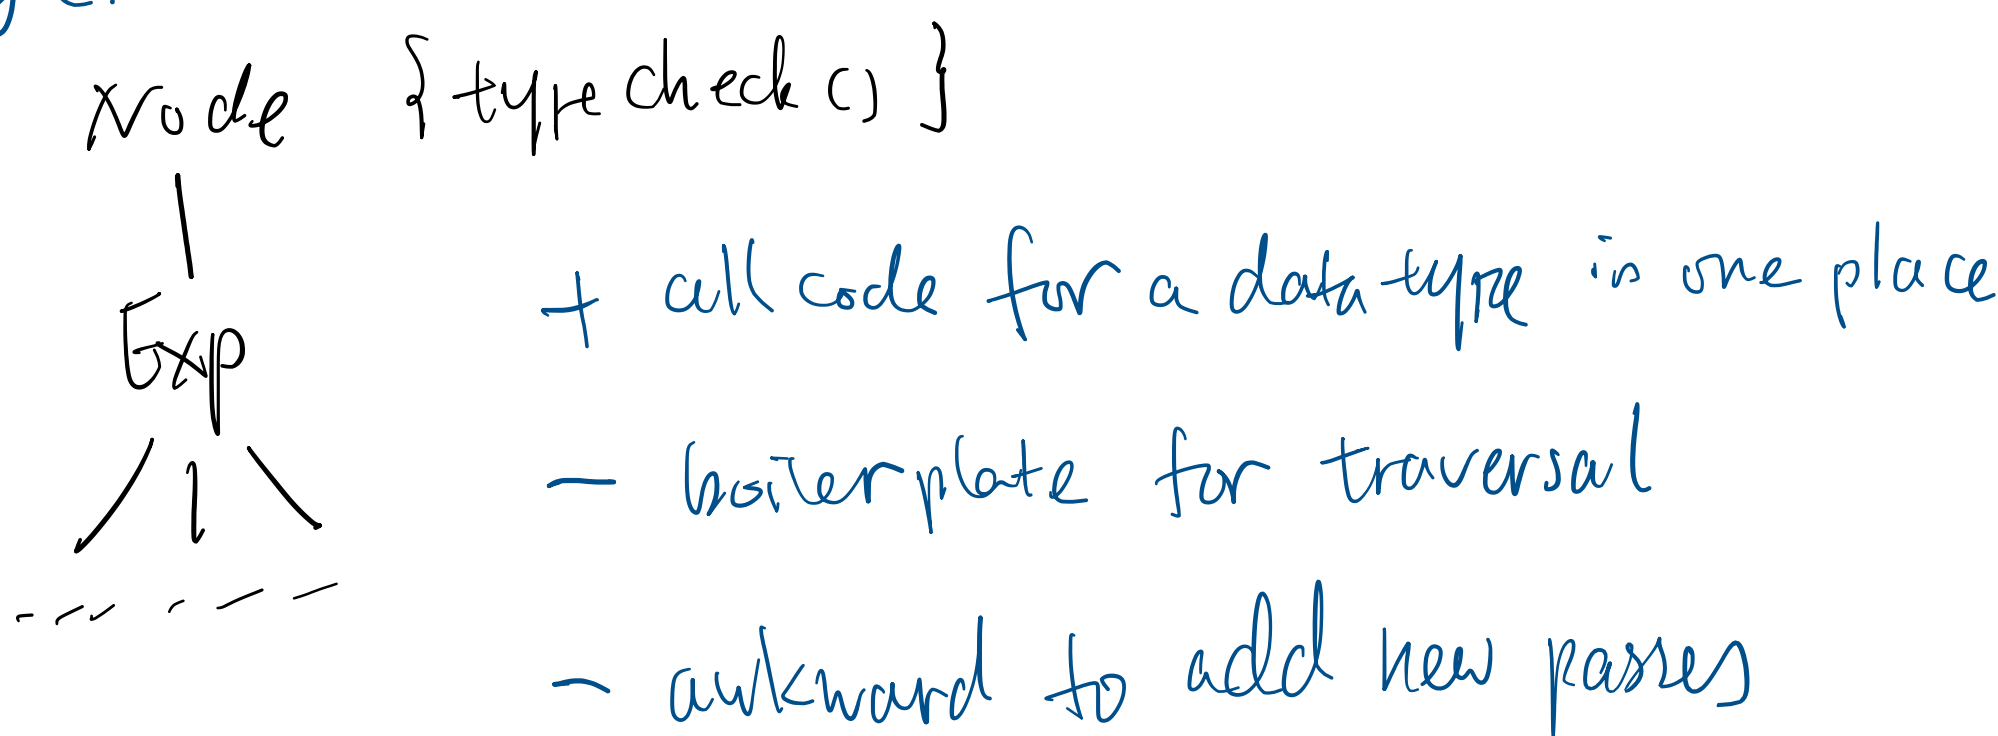 Node { typecheck() }
Exp
+ all code for a datatype is one place
- boilerplate for traversal
- awkward to add new passes